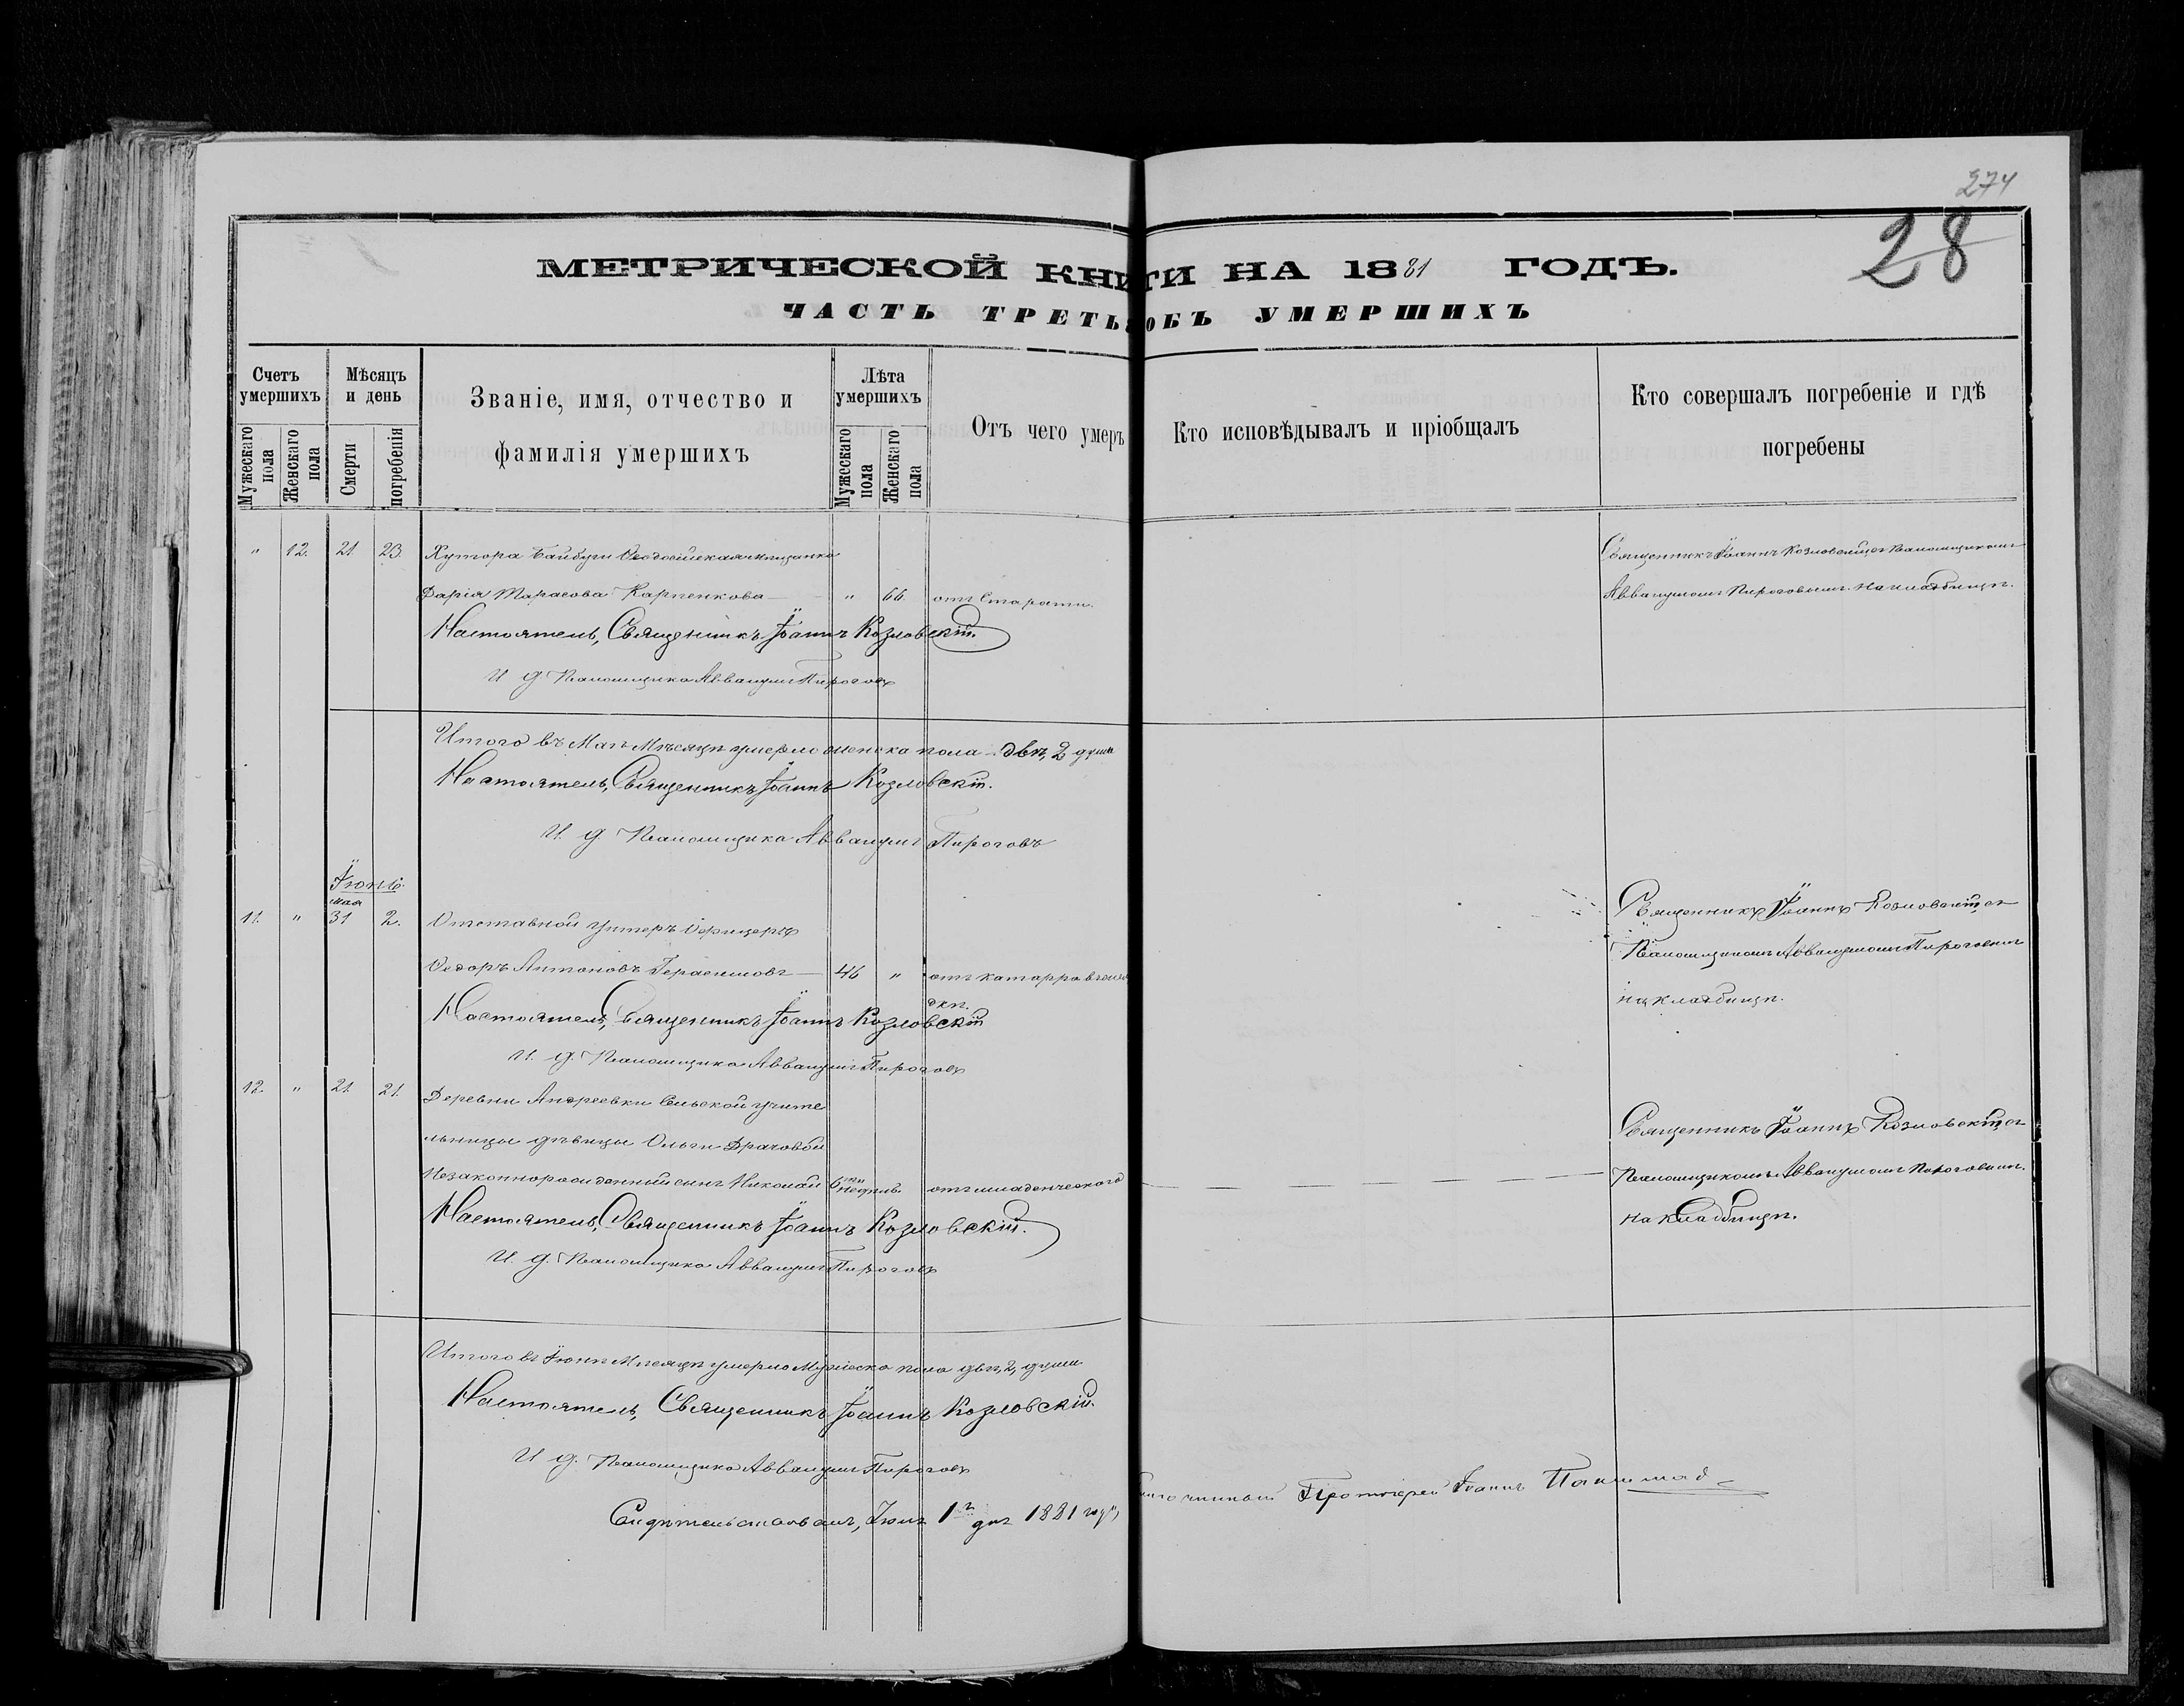 274
28
МЕТРИЧЕСКОЙ КНИГИ НА 1881 ГОДЪ.
ЧАСТЬ ТРЕТЬЯ ОБЪ УМЕРШИХЪ
Счетъ умершихъ
Мужескаго пола
Женскаго пола
Мѣсяцъ и день
Смерти
погребенія
Званіе, имя, отчество и
фамилія умершихъ
Лѣта умершихъ
Мужескаго пола
Женскаго пола
Отъ чего умеръ
Кто исповѣдывалъ и пріобщалъ
Кто совершалъ погребеніе и гдѣ
погребены
" 12. 21. 23 Хутора Байбуги Ѳеодосійская мѣщанка
Дарія Тарасова Карпенкова — " 66. отъ Старати.
Священникъ Іоаннъ Козловскій съ Псаломщикомъ
Аввакумомъ Пироговымъ. На кладбищѣ.
Настоятель, Священникъ Іоаннъ Козловскій.
И д Псаломщика Аввакумъ Пироговъ
Итого въ Маѣ Мѣсяцѣ умерло женска пола - двѣ, 2 души
Настоятель, Священникъ Іоаннъ Козловскій.
И. д Псаломщика Аввакумъ Пироговъ
Іюнь.
мая
11. " 31 2. Отставной Унтеръ Офицеръ
Ѳедоръ Антоновъ Герасимовъ — 46 " отъ катарра въ желу
дкѣ.
Священникъ Іоаннъ Козловскій съ
Псаломщикомъ Аввакумомъ Пироговымъ
на кладбищѣ.
Настоятель, Священникъ Іоаннъ Козловскій
И. д. Псаломщика Аввакумъ Пироговъ
12. " 21. 21. Деревни Андреевки Сельской учите
льницы дѣвицы Ольги Драчовой
Незаконнорожденный сынъ Николай 6 ти недѣль. отъ младенческаго
Священникъ Іоаннъ Козловскій съ
Псаломщикомъ Аввакумомъ Пироговымъ.
на кладбищѣ.
Настоятель, Священникъ Іоаннъ Козловскій.
И. д. Псаломщика Аввакумъ Пироговъ
Итого въ Іюнѣ Мѣсяцѣ умерло Мужеска пола двѣ, 2, души
Настоятель, Священникъ Іоаннъ Козловскій.
И д. Псаломщика Аввакумъ Пироговъ
Свидѣтельствовалъ, Іюля 1го дня 1881 года,
Протоіерей Іоаннъ